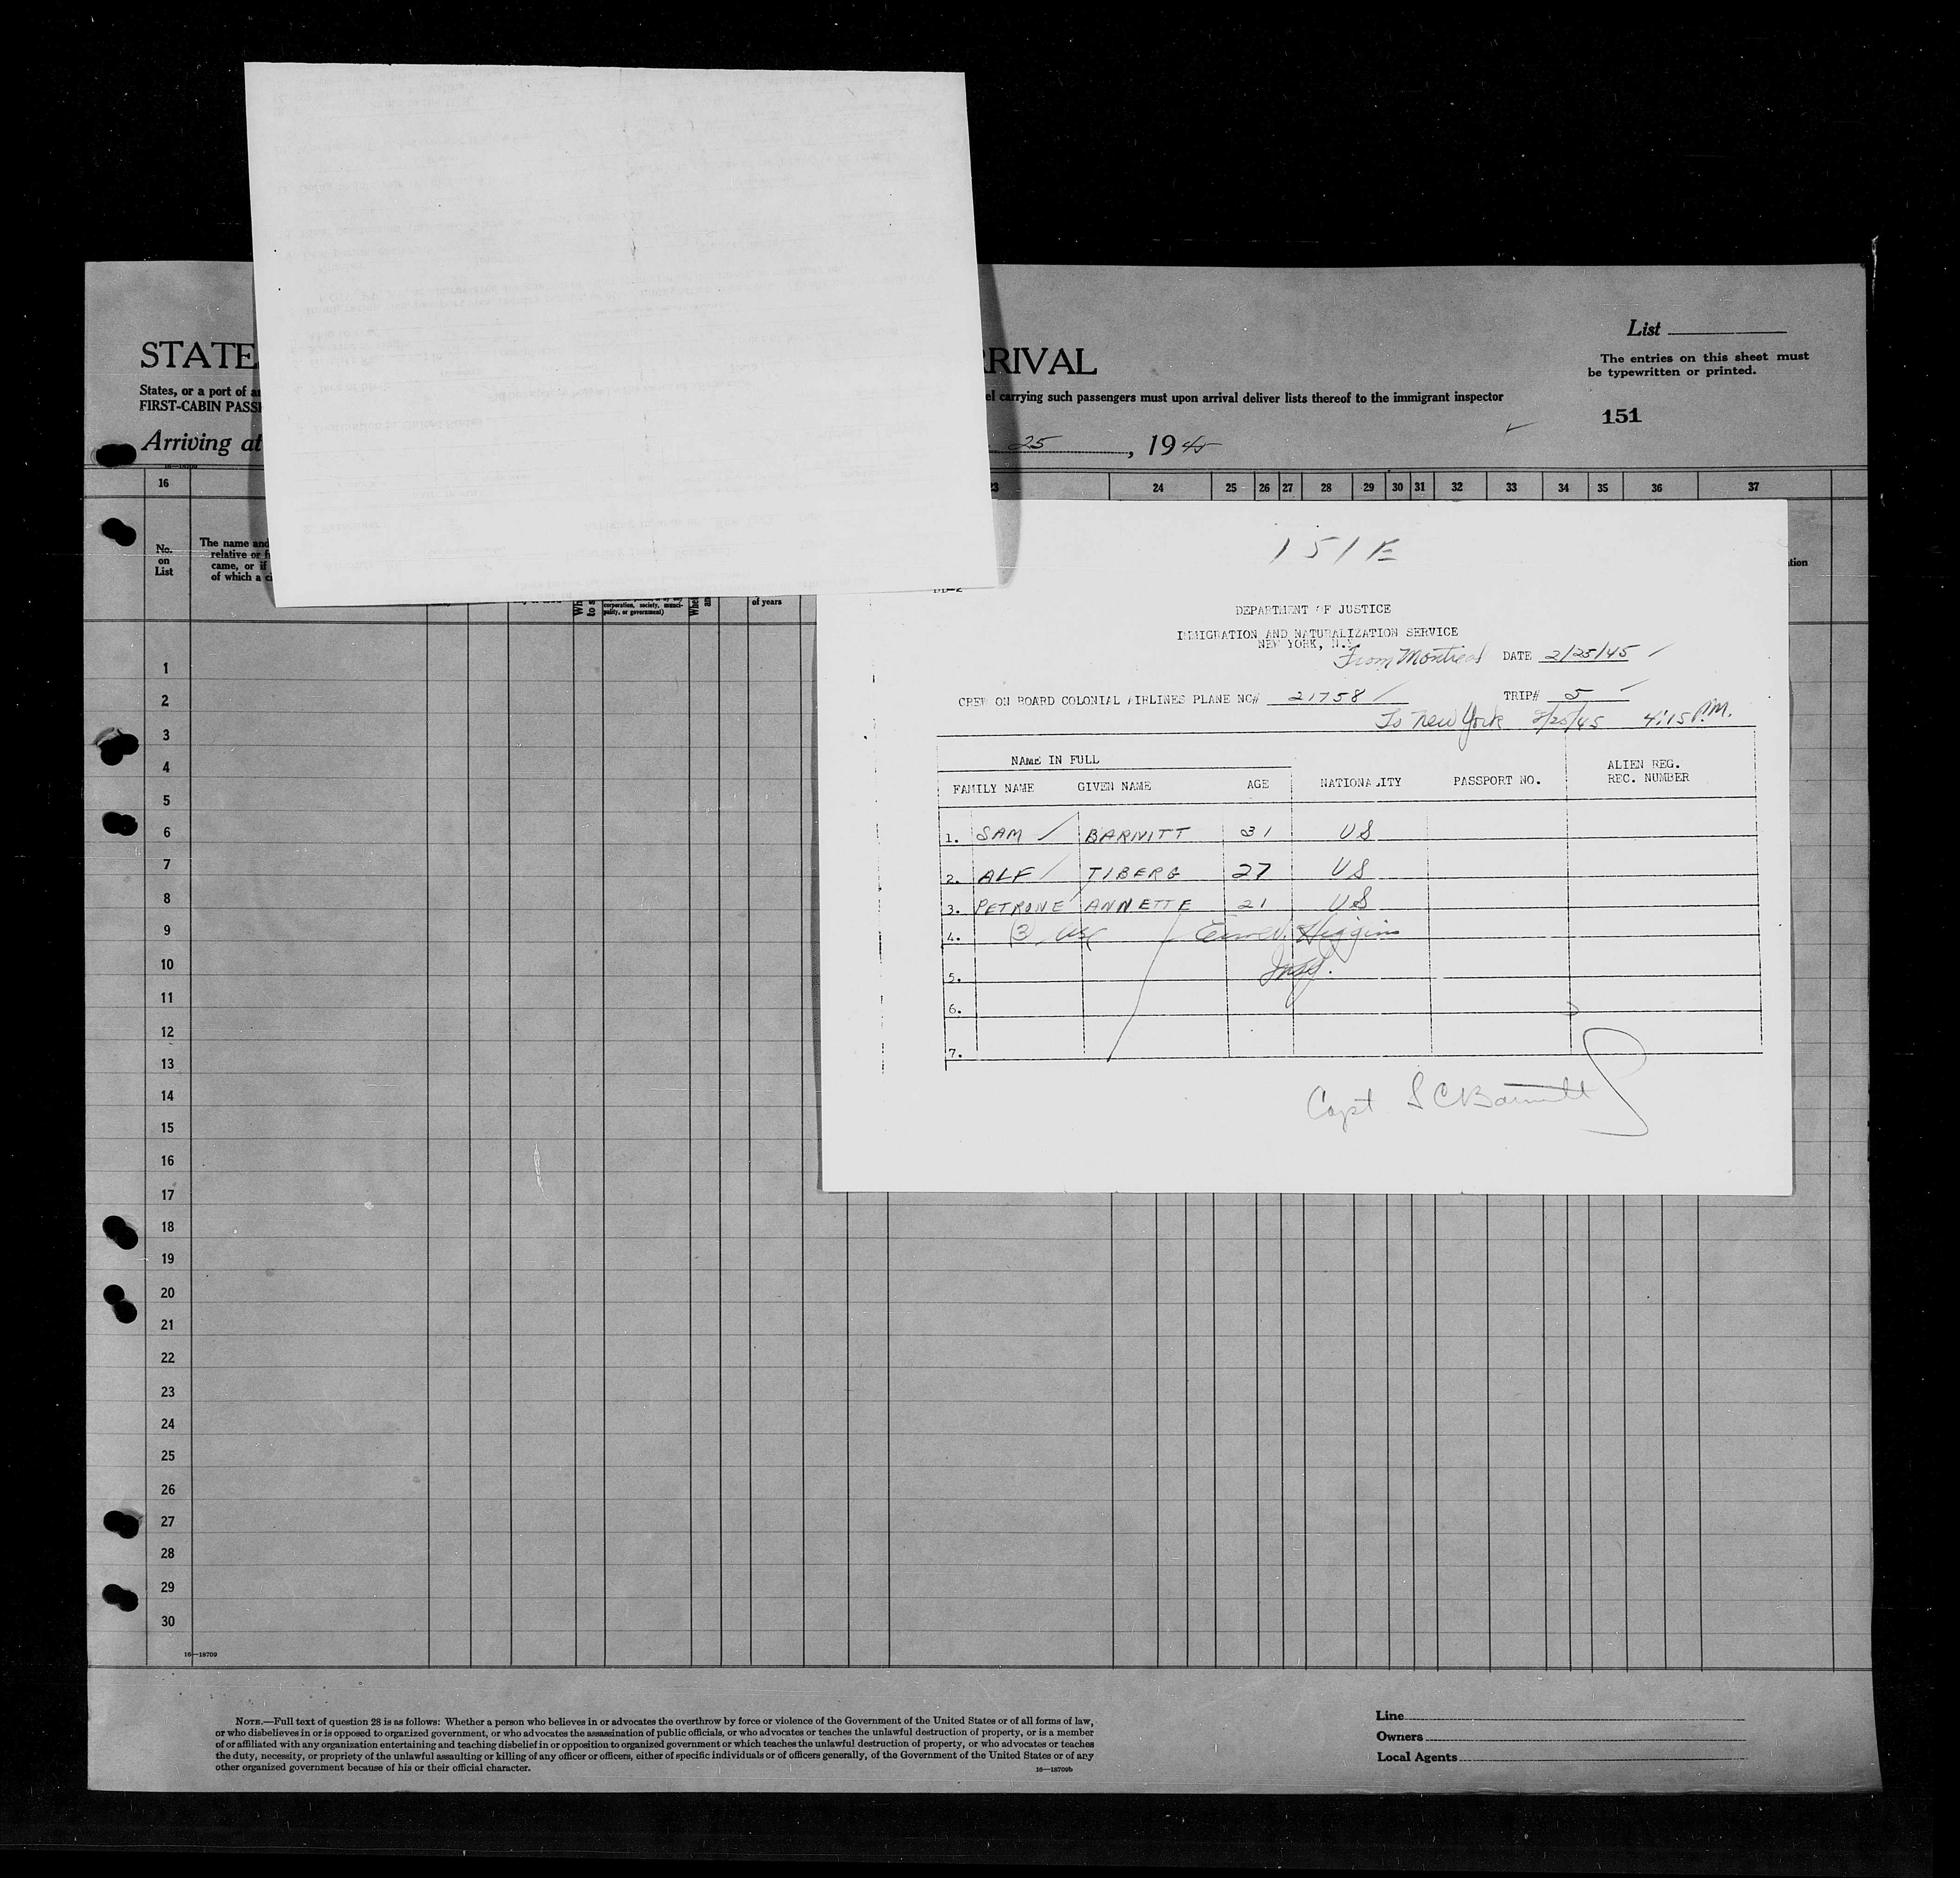 List
The entries on this sheet must
be typewritten or printed.
151
STATE
RRIVAL
States, or a port of
el carrying such passengers must upon arrival deliver lists thereof to the immigrant inspector
FIRST-CABIN PASS
Arriving at
25, 1945
16 24 25 26 27 28 29 30 31 32 33 34 35 36 37
No.
on
List
The name and
relative or
came, or if
of which a
corporation, society, munici-
pality, or government)
of years
151 E
DEPARTMENT OF JUSTICE
IMMIGRATION AND NATURALIZATION SERVICE
NEW YORK, N.Y.
From Montreal DATE 2/25/45
CREW ON BOARD COLONIAL AIRLINES PLANE NO# 21758 TRIP# 5
To New York 2/25/45 4:15 P.M.
NAME IN FULL
FAMILY NAME GIVEN NAME AGE NATIONALITY PASSPORT NO. ALIEN REG. REC. NUMBER
1. SAM BARNITT 31 US
2. ALF TIBERG 27 US
3. PETRONE ANNETTE 21 US
4. (3) USC Higgins
5. Insp.
6.
7.
Capt S C Barnitt
1
2
3
4
5
6
7
8
9
10
11
12
13
14
15
16
17
18
19
20
21
22
23
24
25
26
27
28
29
30
16—18709
NOTE.—Full text of question 28 is as follows: Whether a person who believes in or advocates the overthrow by force or violence of the Government of the United States or of all forms of law,
or who disbelieves in or is opposed to organized government, or who advocates the assassination of public officials, or who advocates or teaches the unlawful destruction of property, or is a member
of or affiliated with any organization entertaining and teaching disbelief in or opposition to organized government or which teaches the unlawful destruction of property, or who advocates or teaches
the duty, necessity, or propriety of the unlawful assaulting or killing of any officer or officers, either of specific individuals or of officers generally, of the Government of the United States or of any
other organized government because of his or their official character.
16—18709b
Line
Owners
Local Agents